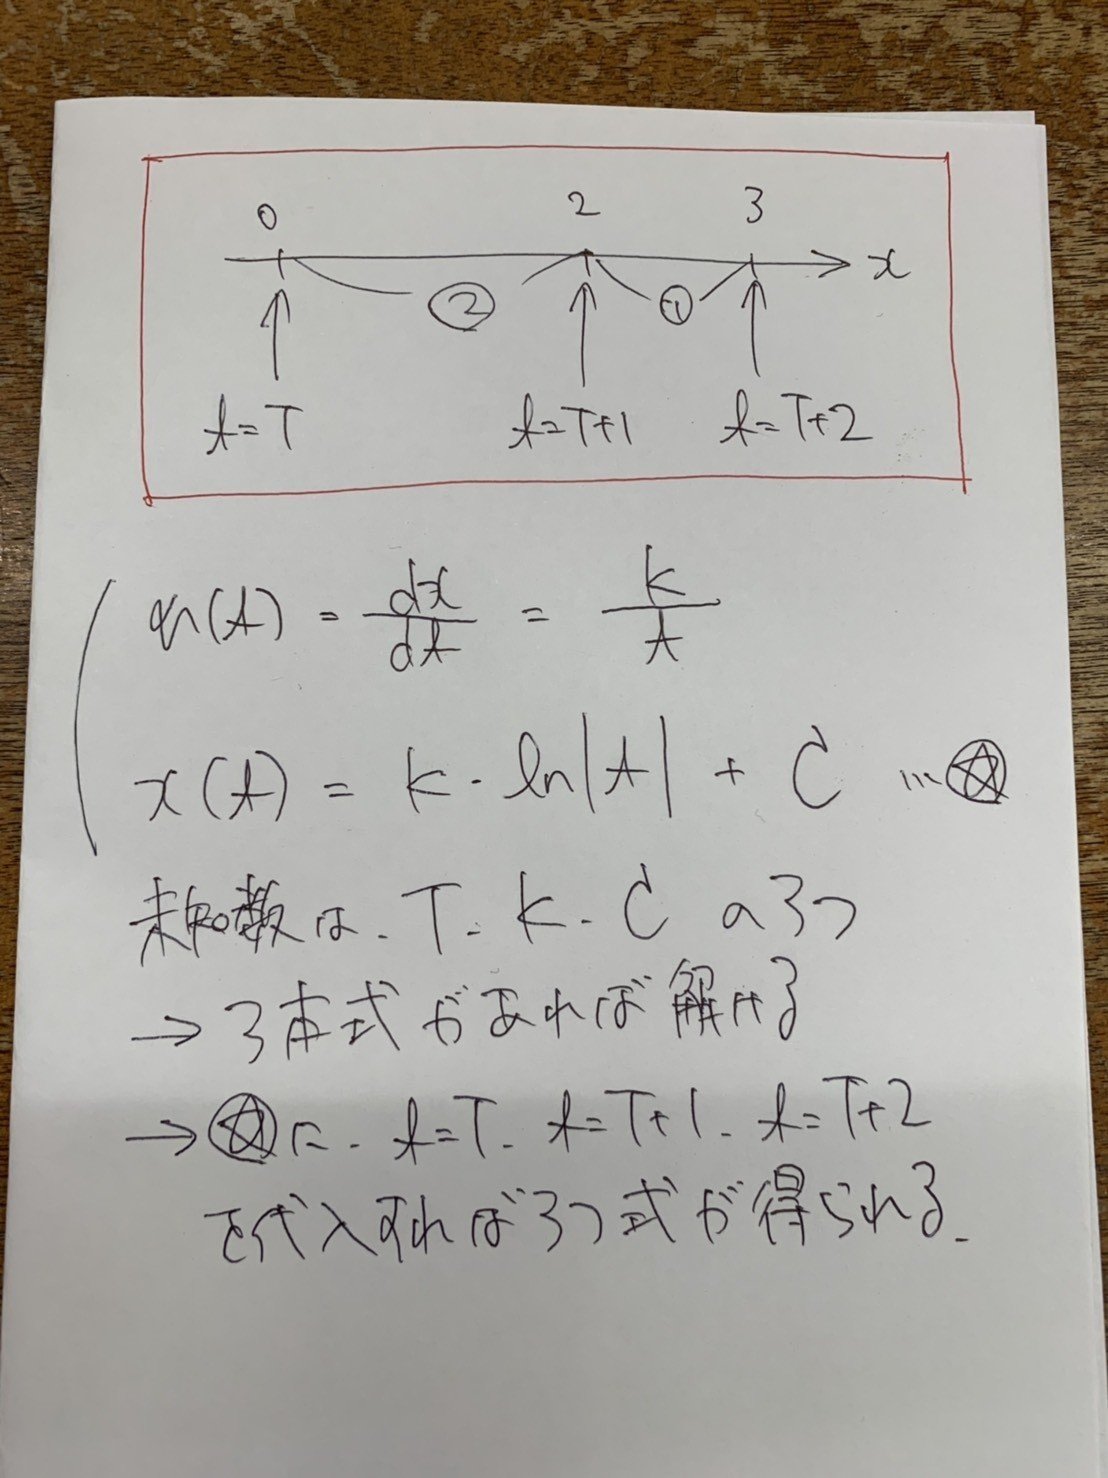 0 2 3
x
② ①
t=T t=T+1 t=T+2
v(t) = dx/dt = k/t
x(t) = k・ln|t| + C …☆
未知数は、T、k、Cの3つ
→ 3本式があれば解ける
→ ☆に、t=T、t=T+1、t=T+2
を代入すれば3つ式が得られる。